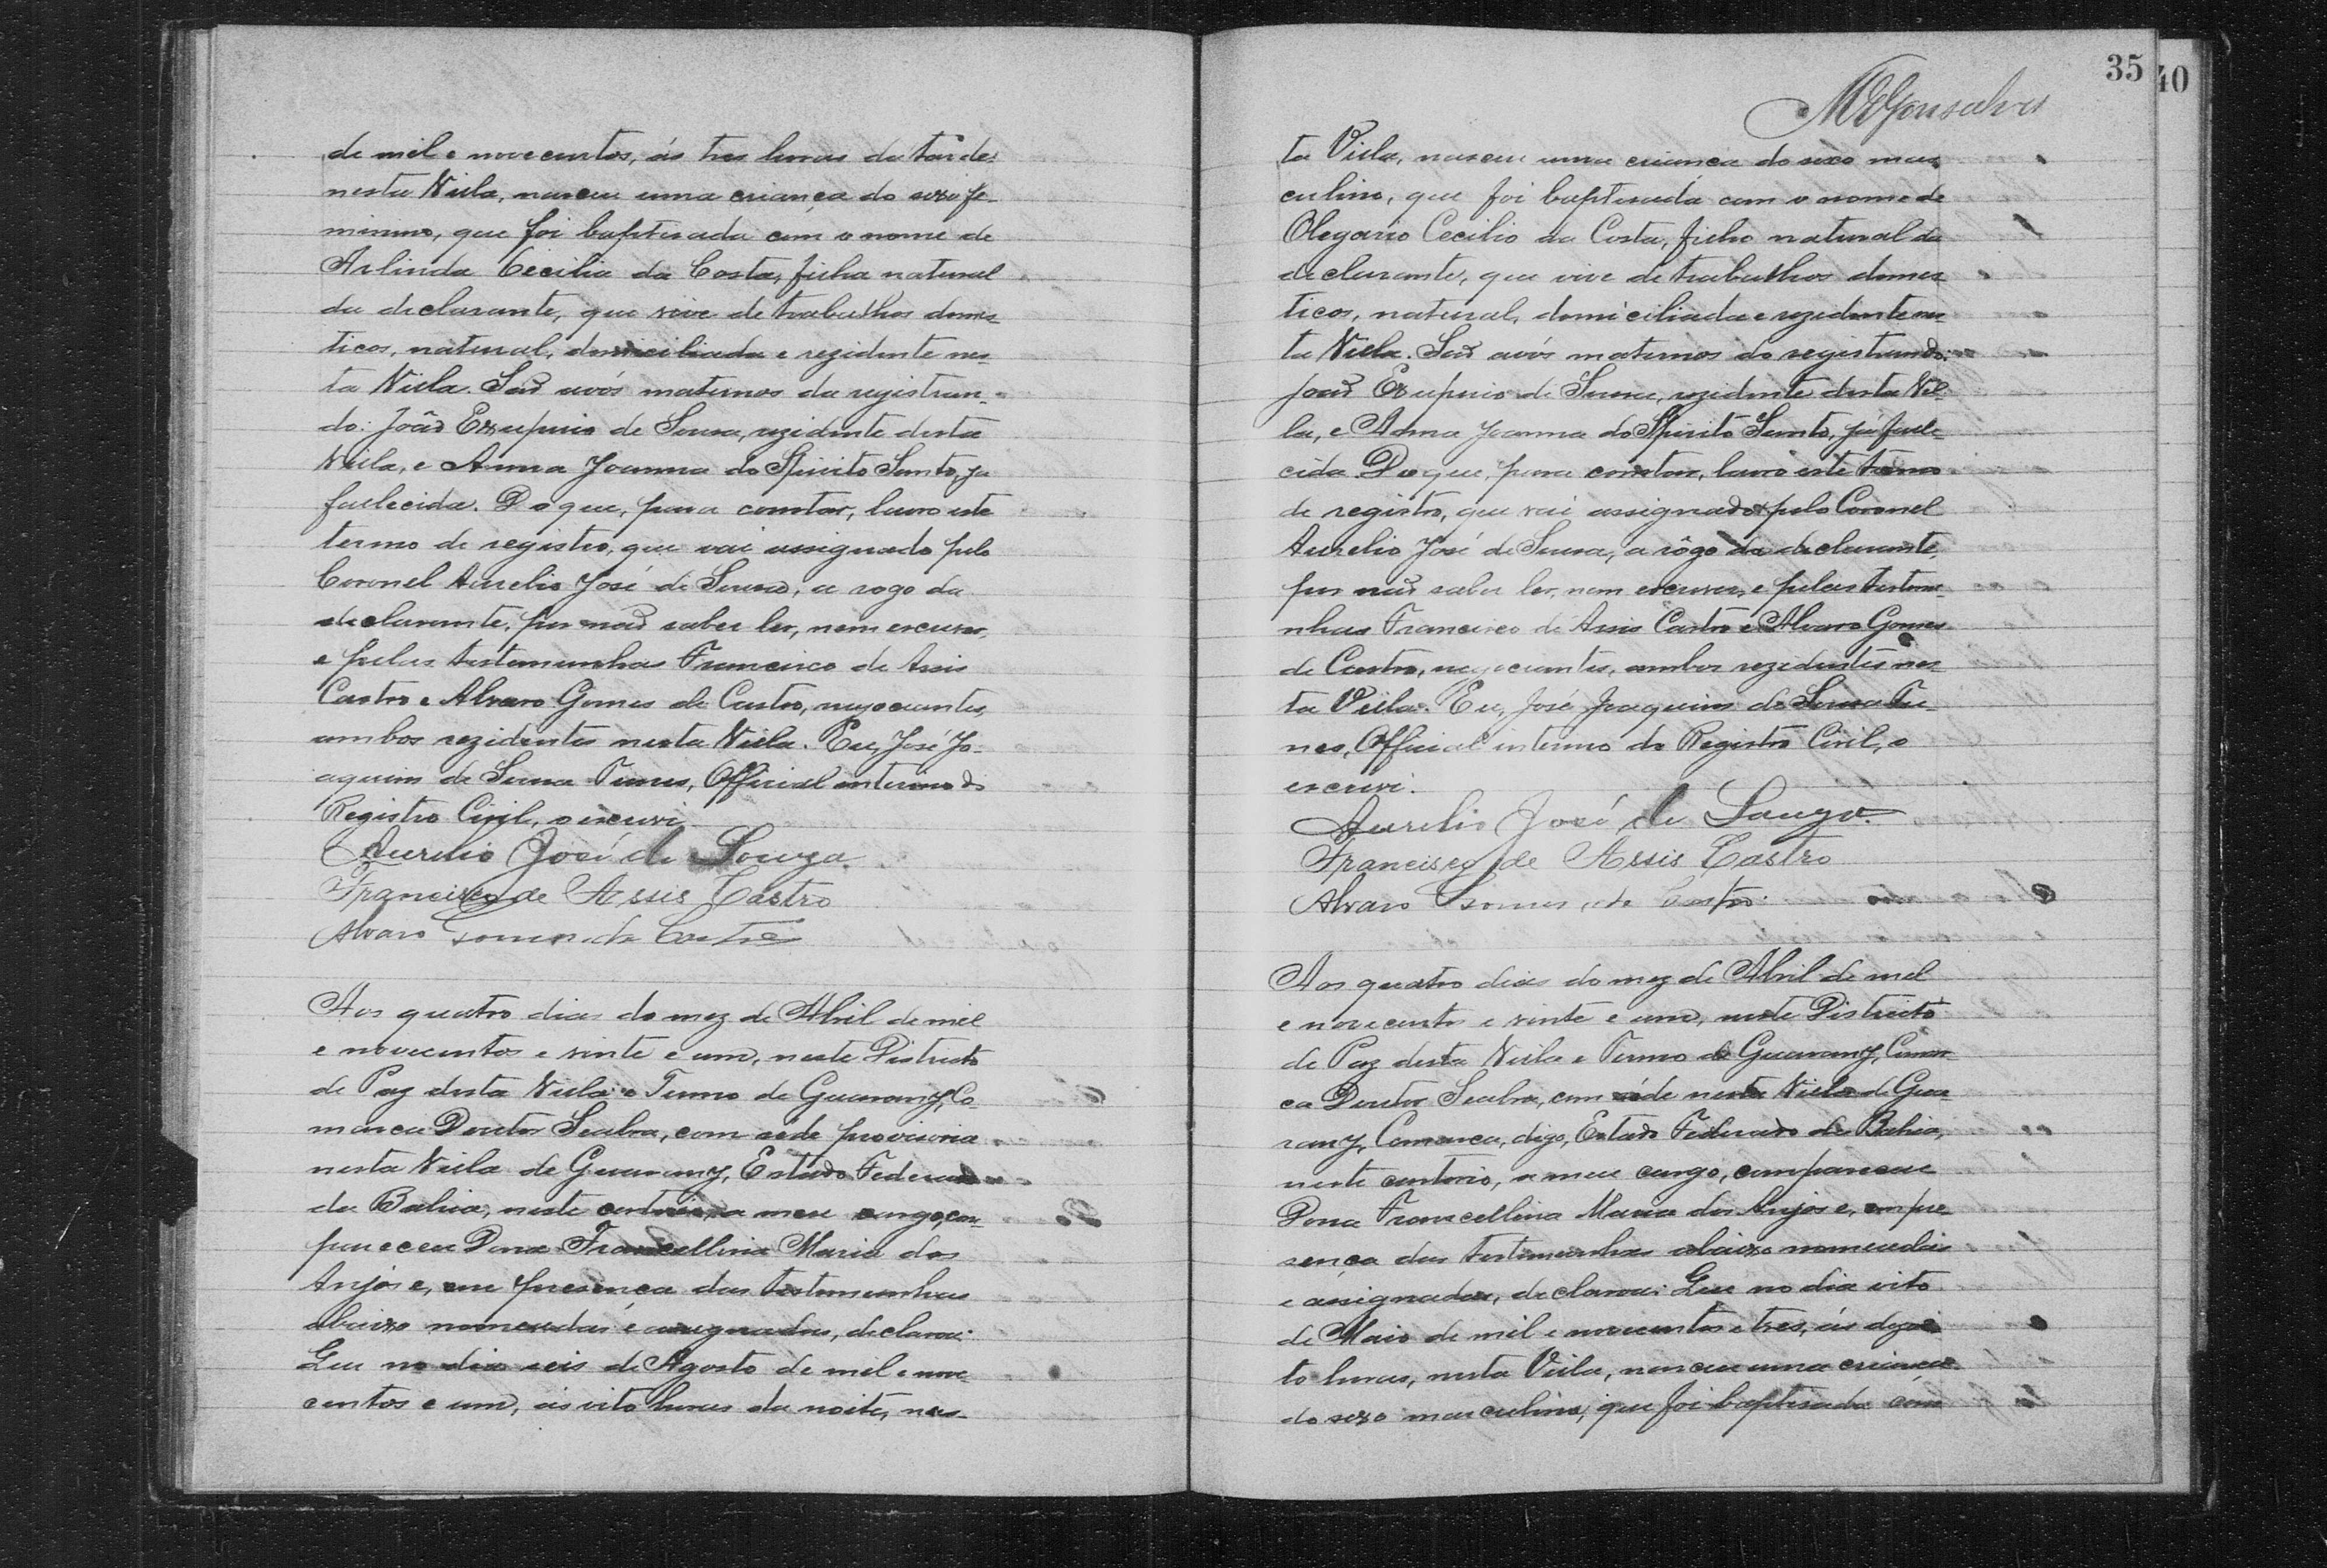 de mil e novecentos, ás tres horas da tarde,
nesta Villa, nasceu uma criança do sexo fe-
minino, que foi baptisada com o nome de
Arlinda Cecilia da Costa, filha natural
da declarante, que vive de trabalhos domes-
ticos, natural, domiciliada e rezidente nes-
ta Villa. São avós maternos da registran-
do: João Exuperio de Sousa, rezidente desta
Villa, e Anna Joanna do Spirito Santo, ja
fallecida. Do que, para constar, lavro este
termo de registro, que vai assignado pelo
Coronel Aurelio José de Sousa, a rogo da
declarante, por não saber ler, nem escrever,
e pelas testemunhas Francisco de Assis
Castro e Alvaro Gomes de Castro, negociantes,
ambos rezidentes nesta Villa. Eu, José Jo-
aquim de Sousa Funes, Official interino do
Registro Civil, o escrevi.
Aurelio José de Souza.
Francisco de Assis Castro
Alvaro Gomes de Castro
Aos quatro dias do mez de Abril de mil
e novecentos e vinte e um, neste Districto
de Paz desta Villa e Termo de Guarany, Co-
marca Doutor Seabra, com séde provisoria
nesta Villa de Guarany, Estado Federado
da Bahia, neste cartorio, a meu cargo, com-
pareceu Dona Francellina Maria dos
Anjos e, em presença das testemunhas
abaixo nomeadas e assignadas, declarou:
Que no dia seis de Agosto de mil e nove-
centos e um, ás oito horas da noite, nes-
35
40
MEGonsalves
ta Villa, nasceu uma criança do sexo mas-
culino, que foi baptisada com o nome de
Olegario Cecilio da Costa, filho natural da
declarante, que vive de trabalhos domes-
ticos, natural, domiciliada e rezidente nes-
ta Villa. São avós maternos do registrando:
João Exuperio de Sousa, rezidente desta Vil-
la, e Anna Joanna do Spirito Santo, já falle-
cida. Do que, para constar, lavro este termo
de registro, que vai assignado pelo Coronel
Aurelio José de Sousa, a rôgo da declarante,
por não saber ler, nem escrever, e pelas testemu-
nhas Francisco de Assis Castro e Alvaro Gomes
de Castro, negociantes, ambos rezidentes nes-
ta Villa. Eu, José Joaquim de Sousa Fu-
nes, Official interino do Registro Civil, o
escrevi.
Aurelio José de Souza.
Francisco de Assis Castro
Alvaro Gomes de Castro.
Aos quatro dias do mez de Abril de mil
e novecentos e vinte e um, neste Districto
de Paz desta Villa e Termo de Guarany, Comar-
ca Doutor Seabra, com séde nesta Villa de Gua-
rany, Comarca, digo, Estado Federado da Bahia,
neste cartorio, a meu cargo, compareceu
Dona Francellina Maria dos Anjos e, em pre-
sença das testemunhas abaixo nomeadas
e assignadas, declarou: Que no dia oito
de Maio de mil e novecentos e tres, ás dezoi-
to horas, nesta Villa, nasceu uma criança
do sexo masculino, que foi baptisada com